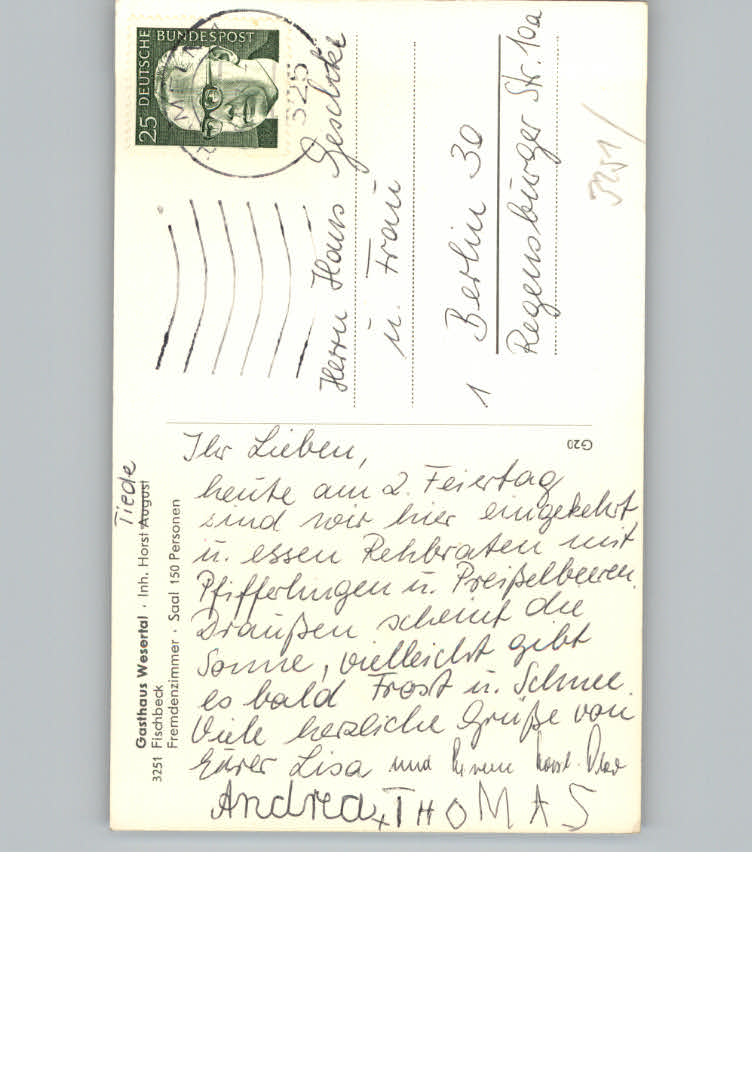 25 DEUTSCHE BUNDESPOST
325
Herrn Hans Geschke
u. Frau
1 Berlin 30
Regensburger Str. 10a
3251/
G20
Tiede
Gasthaus Wesertal · Inh. Horst August
3251 Fischbeck
Fremdenzimmer · Saal 150 Personen
Ihr Lieben,
heute am 2. Feiertag
sind wir hier eingekehrt
u. essen Rehbraten mit
Pfifferlingen u. Preißelbeeren.
Draußen scheint die
Sonne, vielleicht gibt
es bald Frost u. Schnee.
Viele herzliche Grüße von
Eurer Lisa und
Andrea, + THOMAS